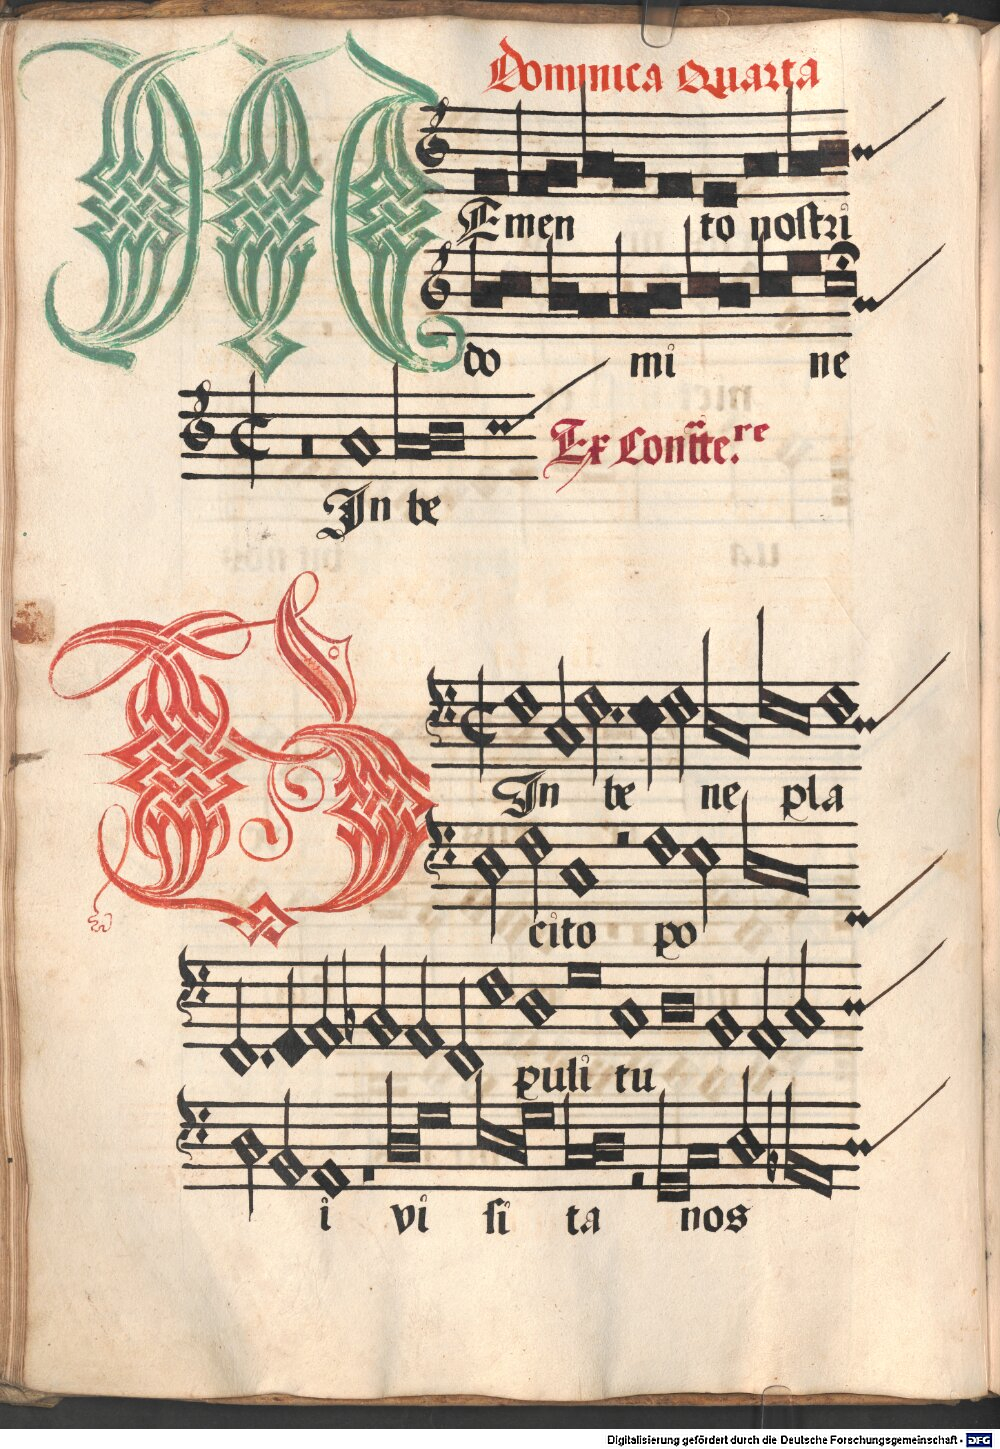 Dominica Quarta
MEmen to nostri
do mi ne
Ex Con
In be
In be ne pla
cito po
puli tu
i vi si ta nos
Digitalisierung gefördert durch die Deutsche Forschungsgemeinschaft - DFG